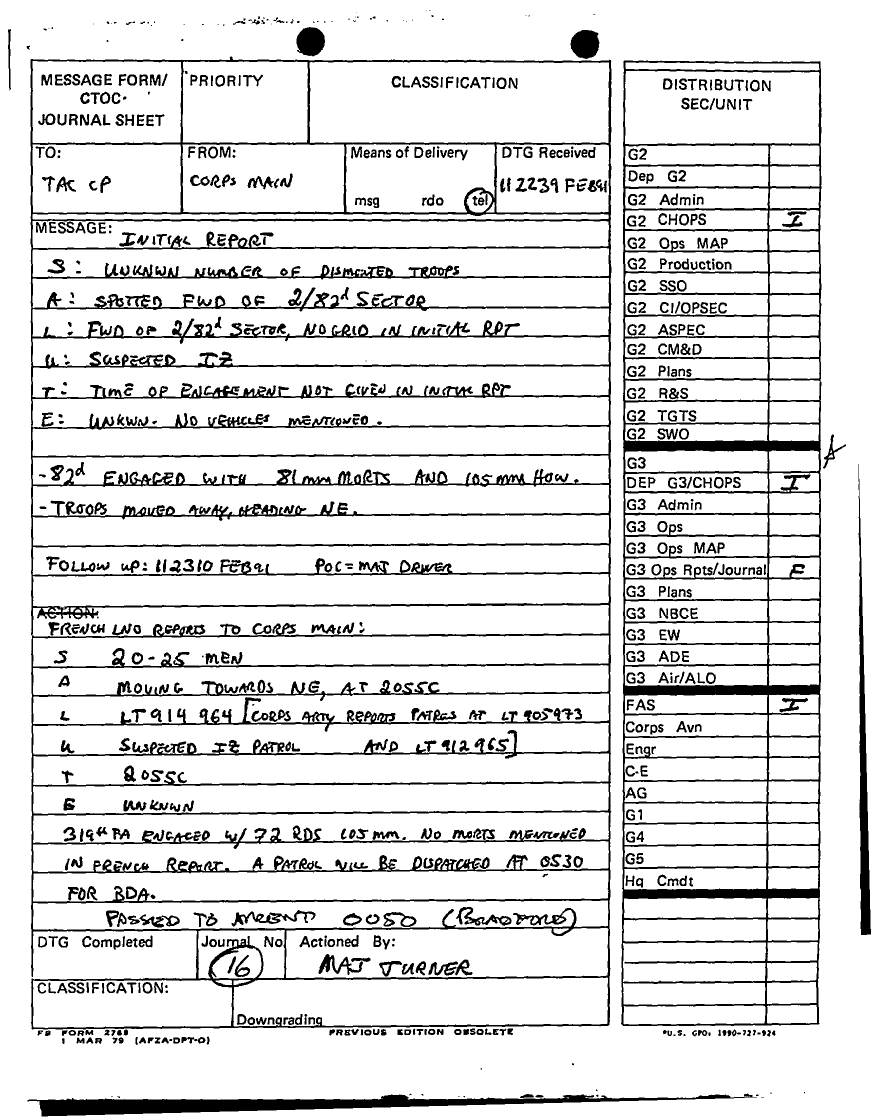 MESSAGE FORM/
CTOC-
JOURNAL SHEET
PRIORITY
CLASSIFICATION
TO:
TAC CP
FROM:
CORPS MAIN
Means of Delivery
msg rdo tel
DTG Received
112239 FEB91
MESSAGE:
INITIAL REPORT
S: UNKNWN NUMBER OF DISMOUNTED TROOPS
A: SPOTTED FWD OF 2/82d SECTOR
L: FWD OF 2/82d SECTOR, NO GRID IN INITIAL RPT
U: SUSPECTED IZ
T: TIME OF ENGAGEMENT NOT GIVEN IN INITIAL RPT
E: UNKWN. NO VEHICLES MENTIONED.
-82d ENGAGED WITH 81mm MORTS AND 105mm HOW.
-TROOPS MOVED AWAY, HEADING NE.
FOLLOW UP: 112310 FEB91 POC=MAJ DRWER
ACTION:
FRENCH LNO REPORTS TO CORPS MAIN:
S 20-25 MEN
A MOVING TOWARDS NE, AT 2055C
L LT 914 964 [CORPS ARTY REPORTS PATRLS AT LT 905973
U SUSPECTED IZ PATROL AND LT 912965]
T 2055C
E UNKNWN
319th FA ENGAGED W/ 72 RDS 105mm. NO MORTS MENTIONED
IN FRENCH REPORT. A PATROL WILL BE DISPATCHED AT 0530
FOR BDA.
PASSED TO ARCENT 0050 (BRADFORD)
DTG Completed
Journal No
16
Actioned By:
MAJ TURNER
CLASSIFICATION:
Downgrading
FB FORM 2768
1 MAR 79 (AFZA-DPT-O)
PREVIOUS EDITION OBSOLETE
DISTRIBUTION
SEC/UNIT
G2
Dep G2
G2 Admin
G2 CHOPS I
G2 Ops MAP
G2 Production
G2 SSO
G2 CI/OPSEC
G2 ASPEC
G2 CM&D
G2 Plans
G2 R&S
G2 TGTS
G2 SWO
G3
DEP G3/CHOPS I
G3 Admin
G3 Ops
G3 Ops MAP
G3 Ops Rpts/Journal F
G3 Plans
G3 NBCE
G3 EW
G3 ADE
G3 Air/ALO
FAS I
Corps Avn
Engr
C-E
AG
G1
G4
G5
Hq Cmdt
*U.S. GPO: 1990-727-924